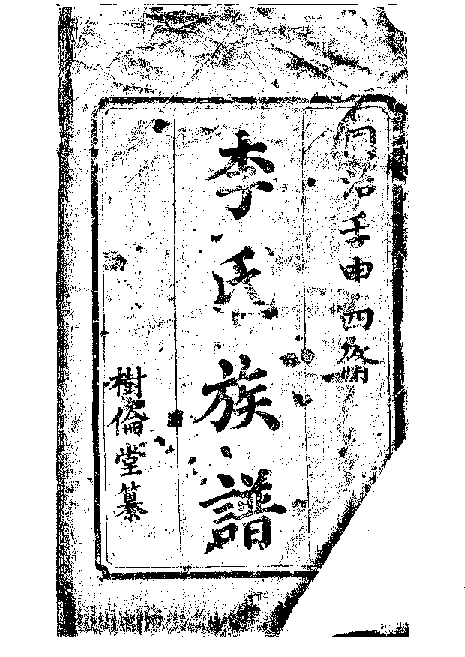 同治壬申四脩
李氏族譜
樹倫堂纂